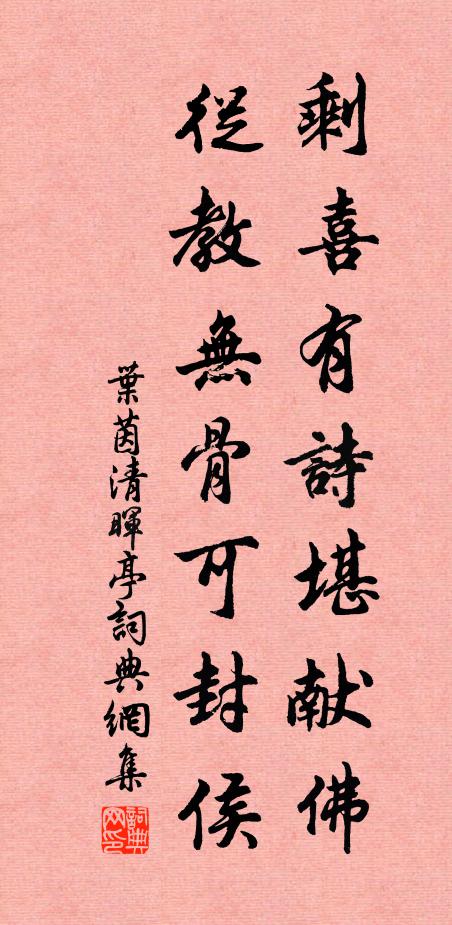 剩喜有詩堪献佛
從教無骨可封侯
葉茵清暉亭詞典網集
詞典网印